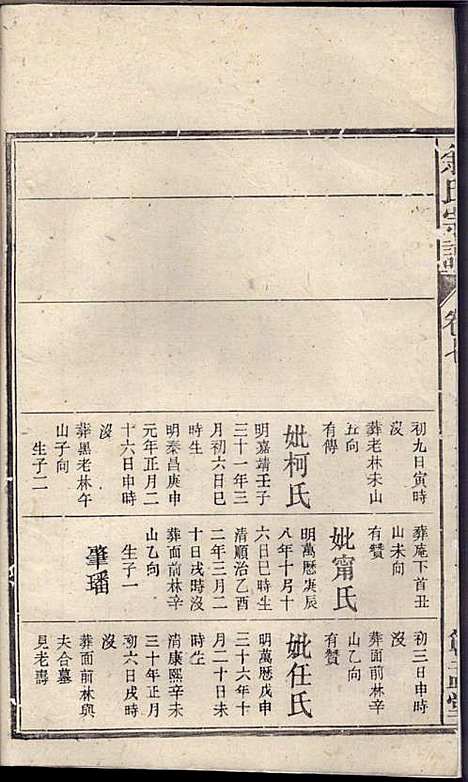 氏宗譜
卷七
初九日寅時
沒
葬老林未山
丑向
有傳
妣柯氏
明嘉靖壬子
三十一年三
月初六日巳
時生
明泰昌庚申
元年正月二
十六日申時
沒
葬黑老林午
山子向
生子二
葬庵下首丑
山未向
有贊
妣甯氏
明萬歷庚辰
八年十月十
六日巳時生
清順治乙酉
二年三月二
十日戌時沒
葬面前林辛
山乙向
生子一
肇璠
初三日申時
沒
葬面前林辛
山乙向
有贊
妣任氏
明萬歷戊申
三十六年十
月二十日未
時生
清康熙辛未
三十年正月
初六日戌時
沒
葬面前林與
夫合墓
見老壽